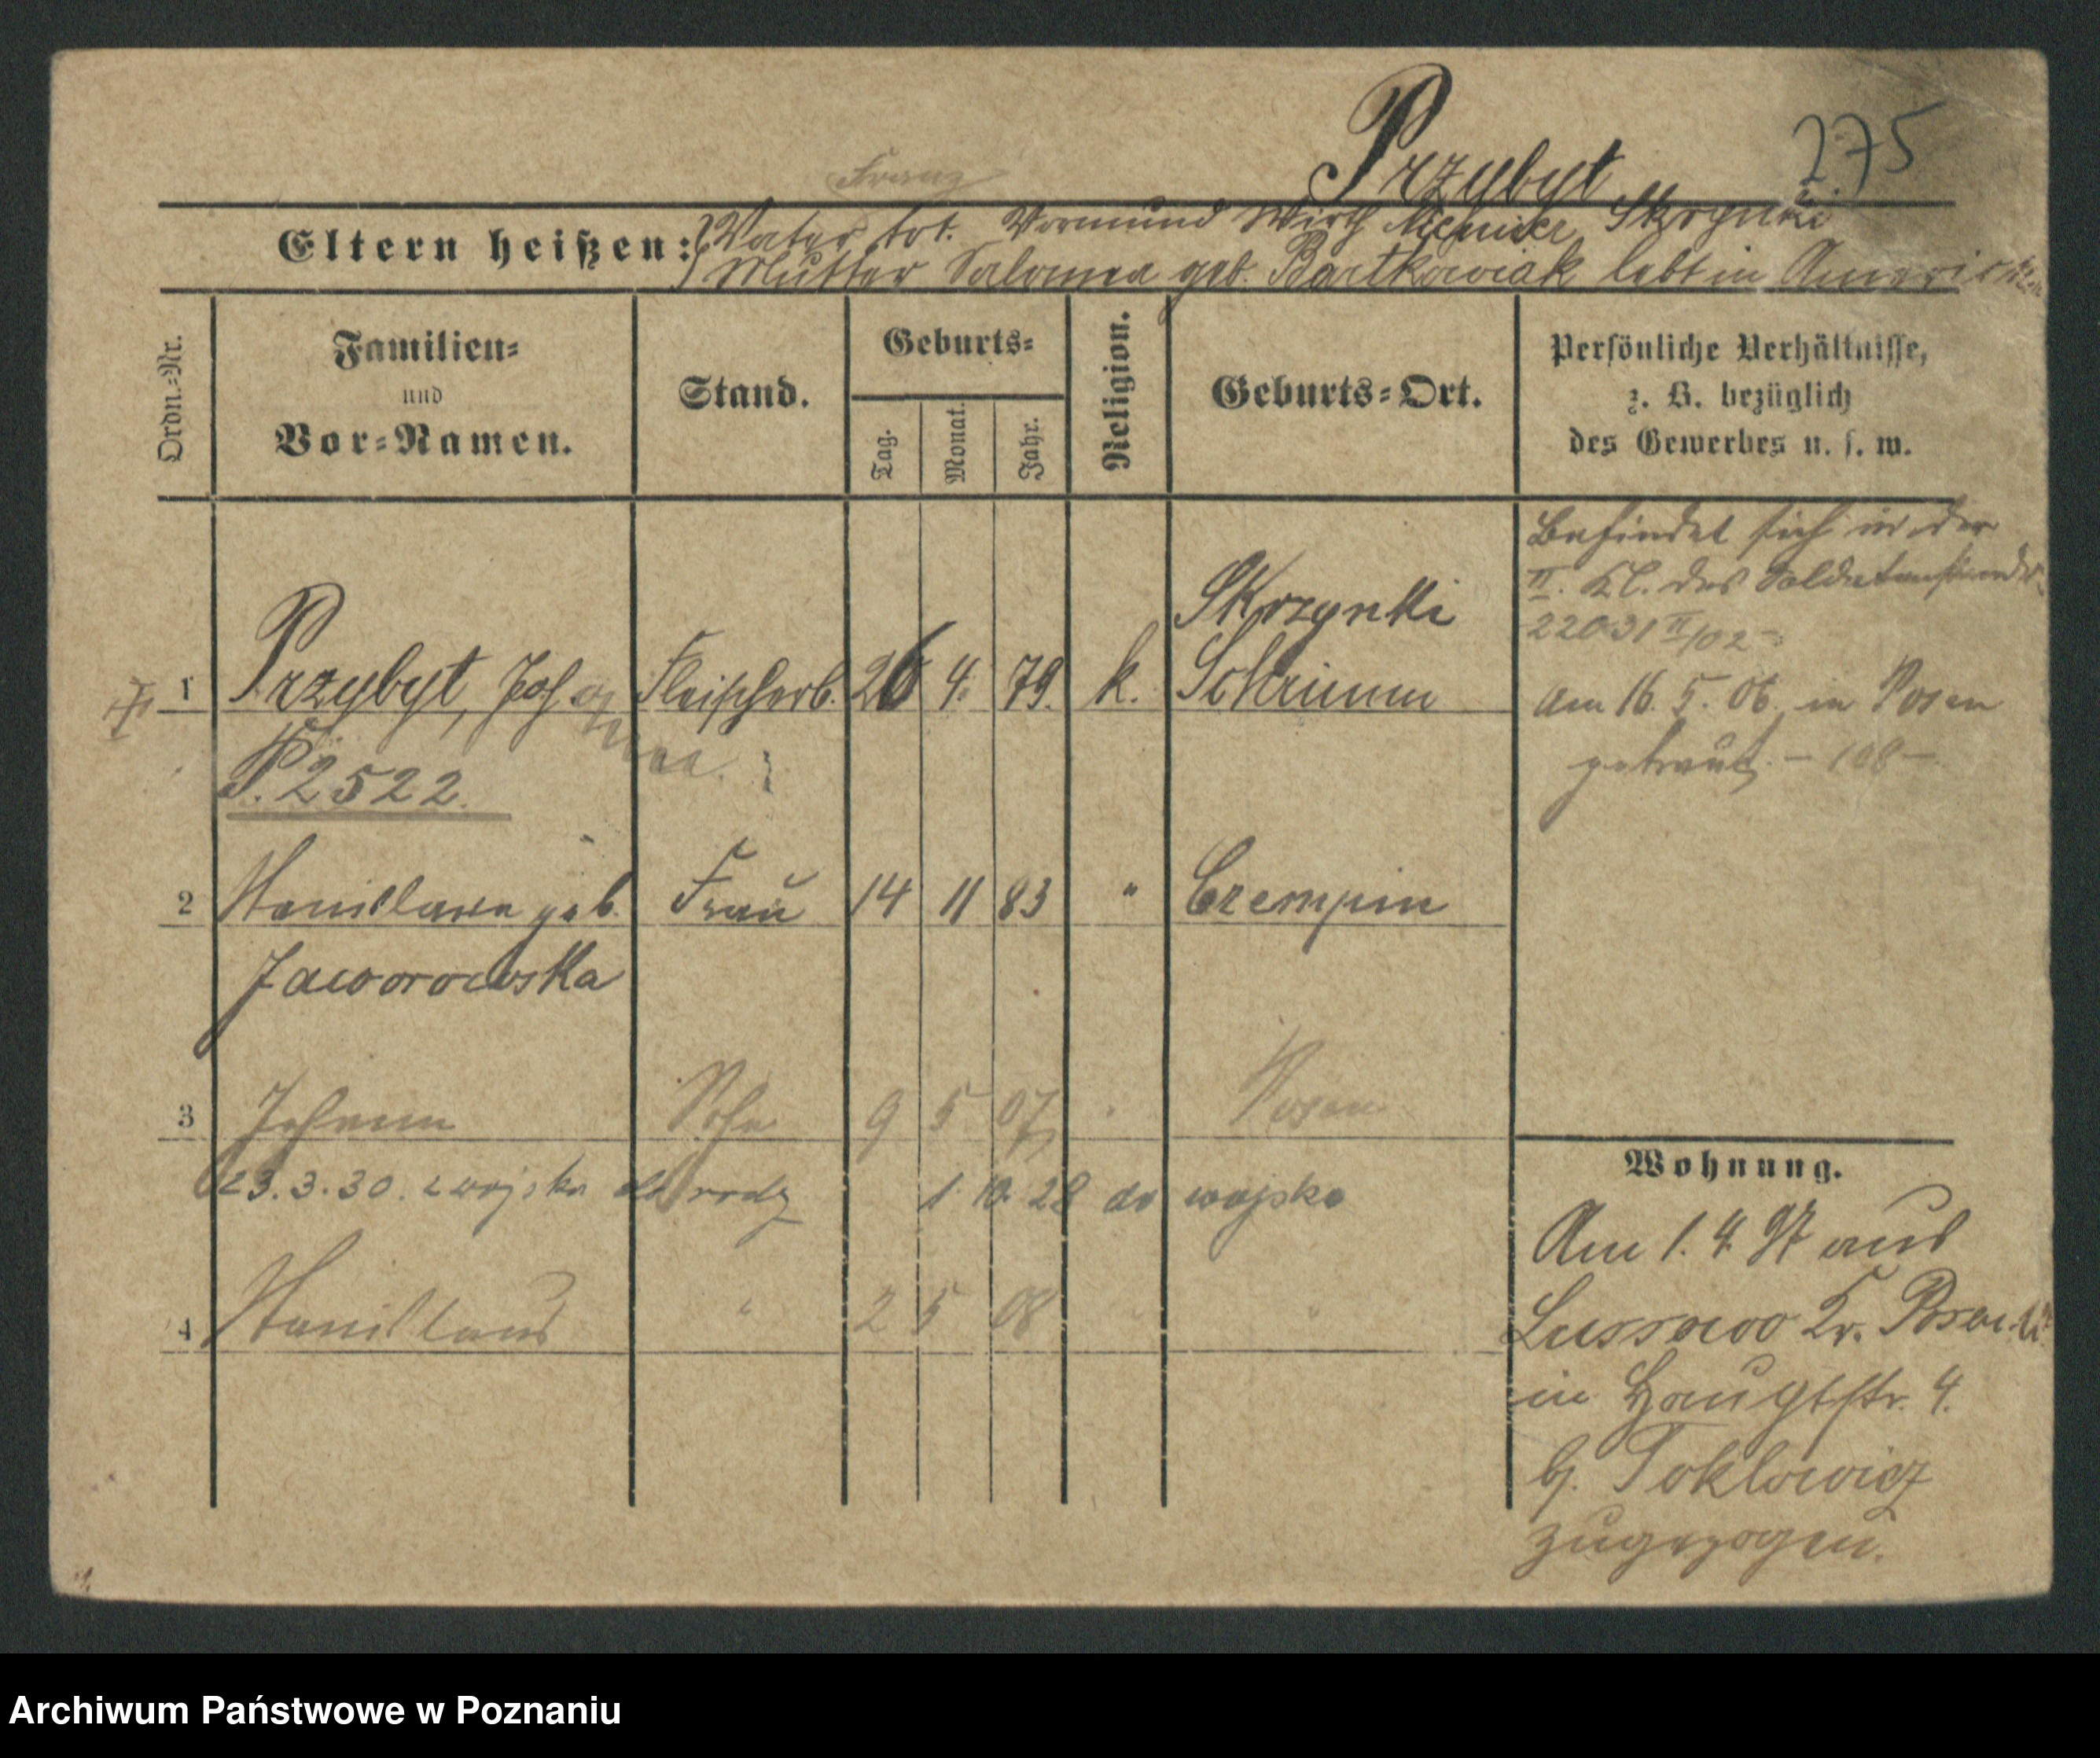 Przybyt 275
Franz
Eltern heißen: Vater tot. Vormund Wirth Skrzynki
Mutter Salomea geb. Bartkowiak lebt in Amerika
Ordn.-Nr.
Familien-
und
Vor-Namen.
Stand.
Geburts-
Tag.
Monat.
Jahr.
Religion.
Geburts-Ort.
Persönliche Verhältnisse,
z. B. bezüglich
des Gewerbes u. s. w.
Befindet sich in der
II. Kl. des Soldatenstandes
22031 II/02
Skrzynki
1 Przybyt, Johann Fleischerb. 26 4. 79. k. Schrimm
Am 16. 5. 06. in Posen
getraut. – 108 –
P. 2522.
2 Stanislawa geb. Frau 14 11 83 " Czempin
Jaworowska
3 Johann Sohn 9 5 07 " Posen
23.3.30. z wojska do rodz 1 10 28 do wojska
4 Stanislaus " 2 5 08 " "
Wohnung.
Am 1. 4. 97 aus
Lussowo Kr. Posen
in Hauptstr. 4.
b. Toklowicz
zugezogen.
Archiwum Państwowe w Poznaniu